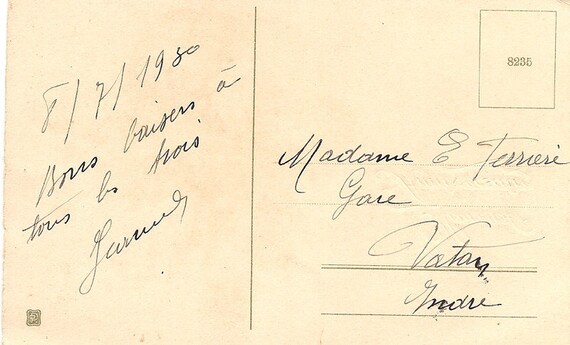 8/7/1930
Bons baisers à
tous les trois
8235
Madame E Terrière
Gare
Vatan
Indre